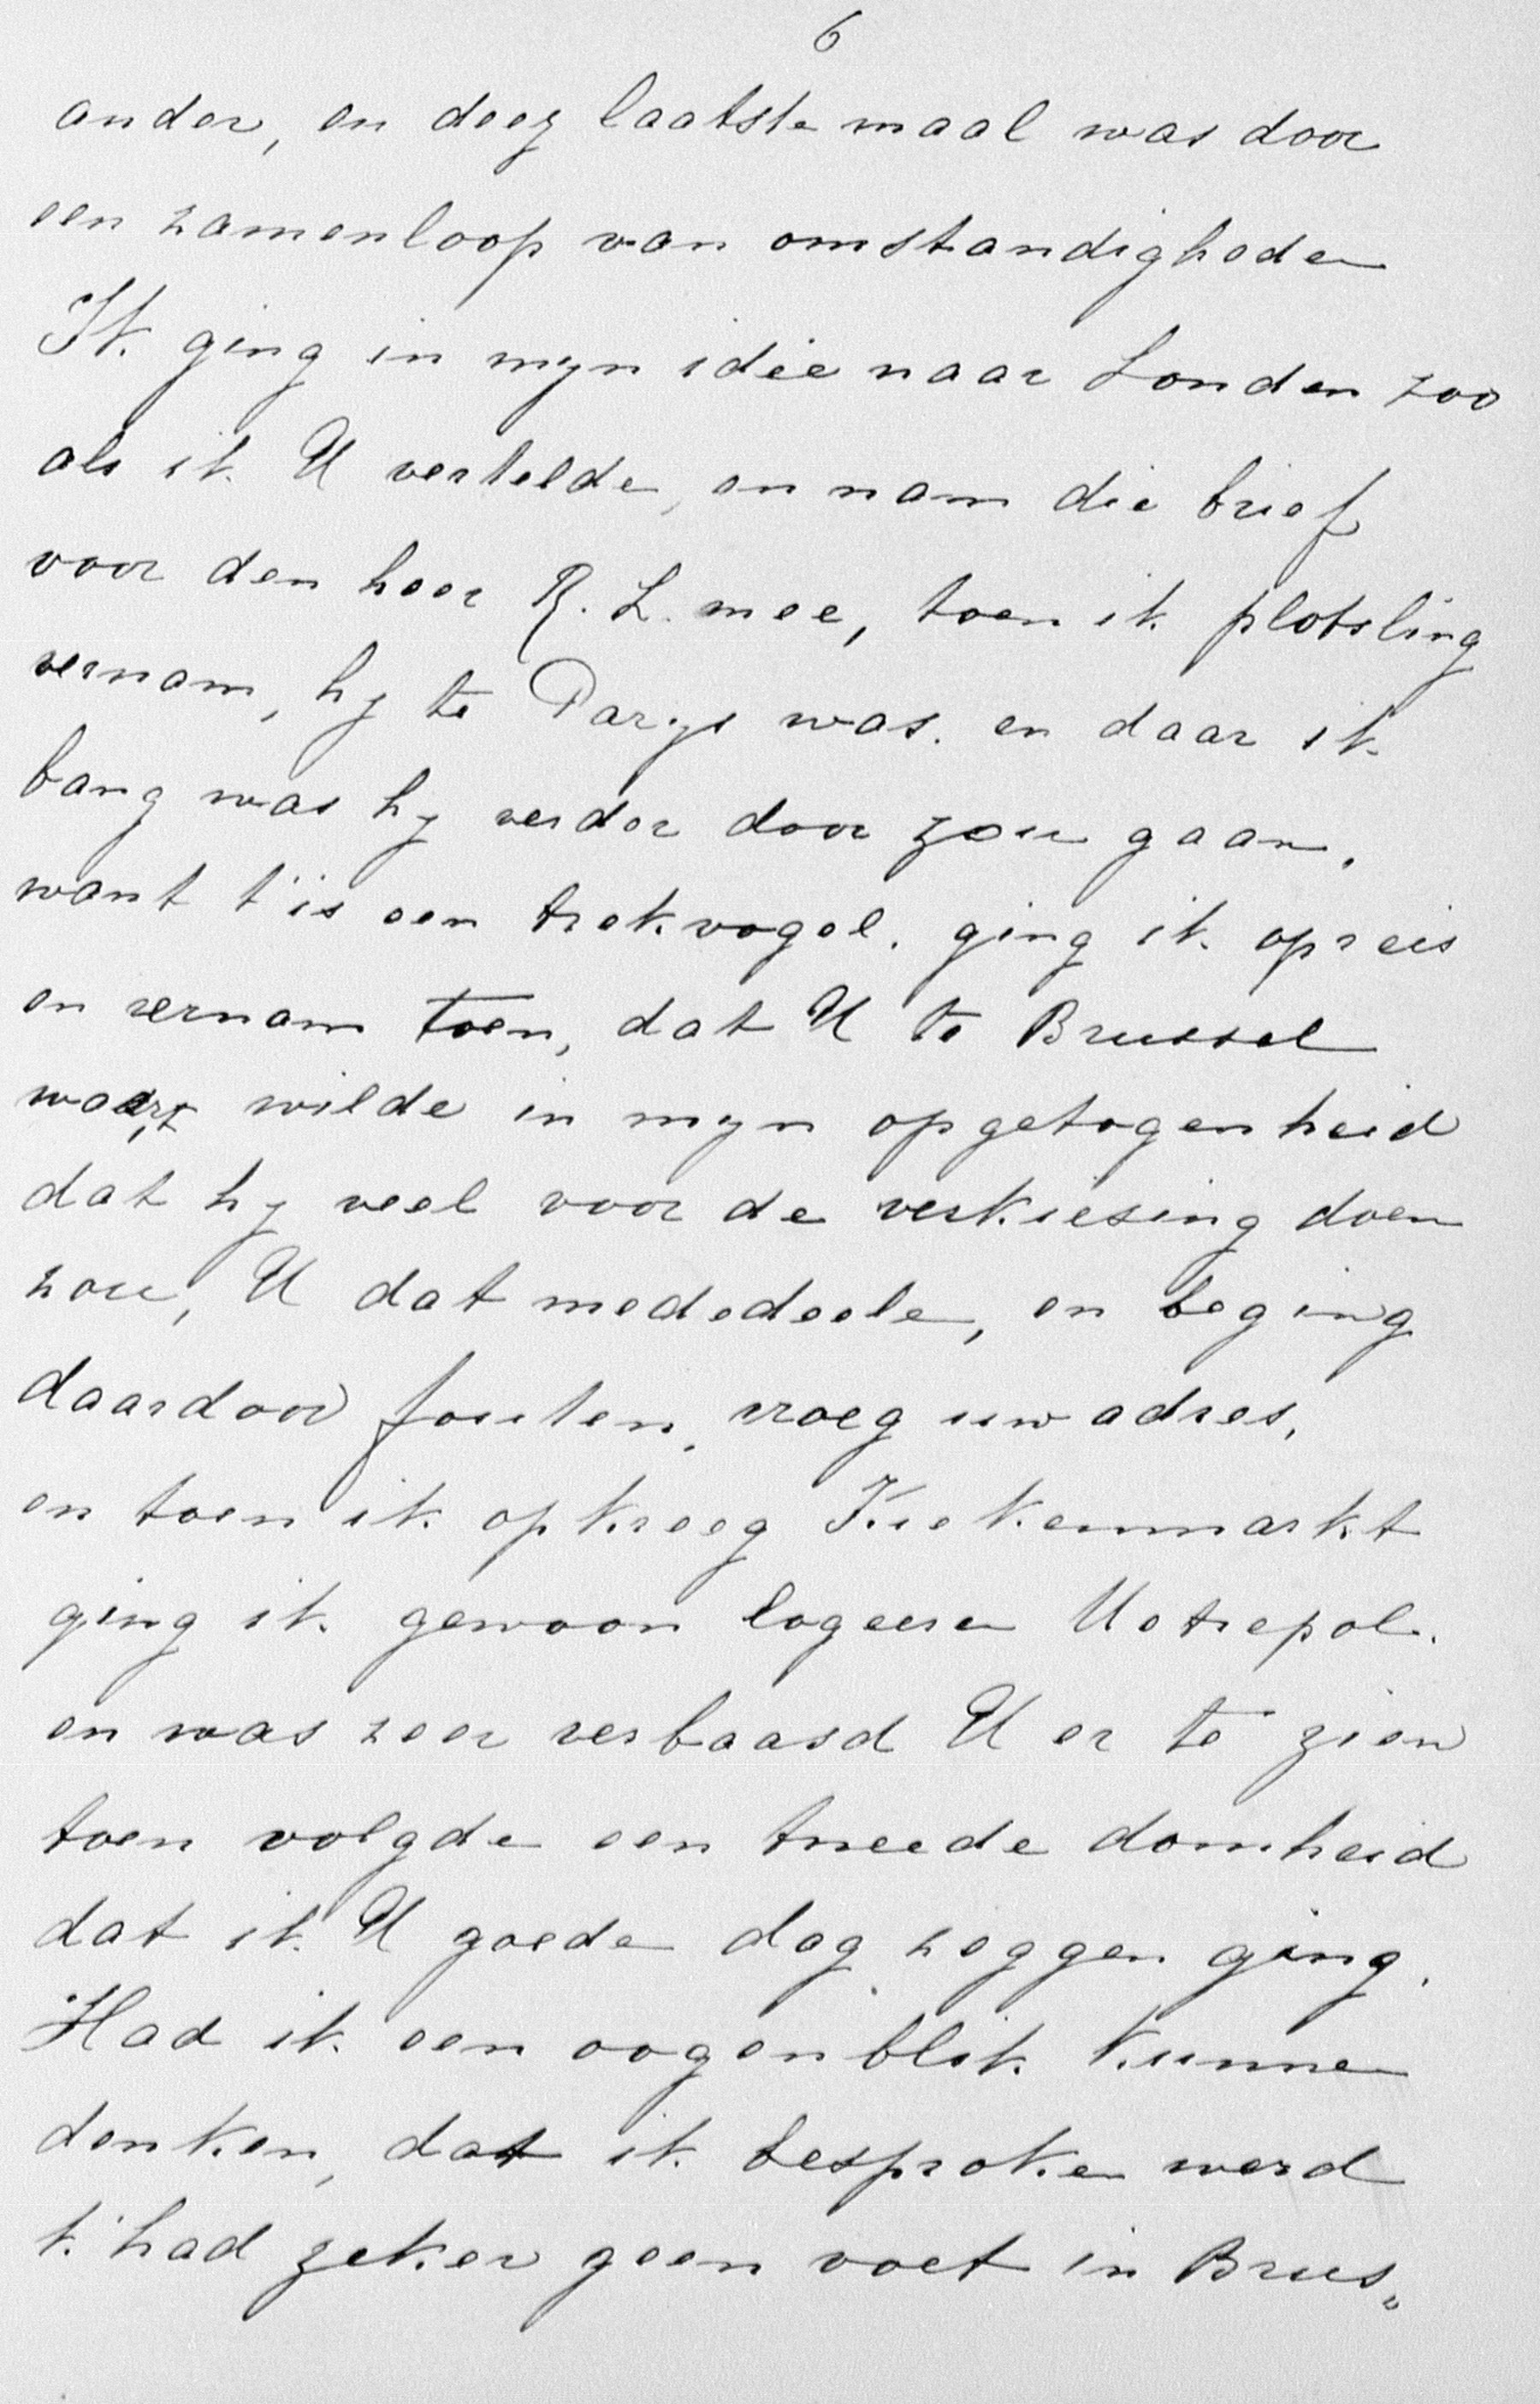 6
ander, en deez laatste maal was door
een zamenloop van omstandigheden
Ik ging in myn idée naar Londen zoo
als ik U vertelde, en nam die brief
voor den heer R. L. mee, toen ik plotsling
vernam, hy te Parys was. en daar ik
bang was hy verder door zou gaan,
want t'is een trekvogel. ging ik op reis
en vernam toen, dat U te Brussel
waart wilde in myn opgetogenheid
dat hy veel voor de verkiesing doen
zou, U dat mededeele, en beging
daardoor fouten, vroeg uw adres,
en toen ik opkreeg Kiekenmarkt
ging ik gewoon logeeren Metropol.
en was zeer verbaasd U er te zien
toen volgde een tweede domheid
dat ik U goede dag zeggen ging.
Had ik een oogenblik kunnen
denken, dat ik besproken werd
k'had zeker geen voet in Brus„